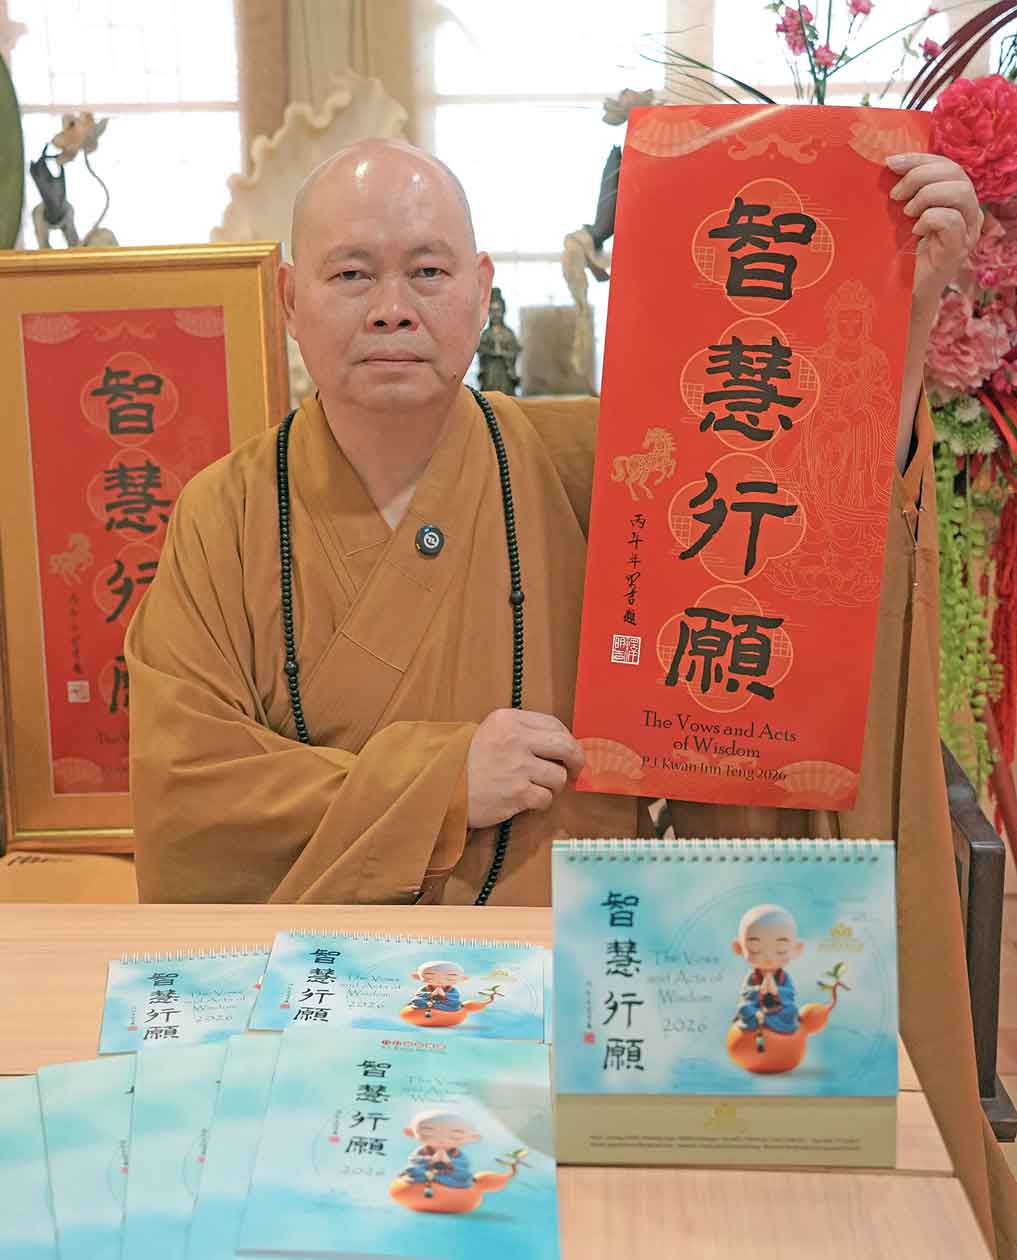 智慧行願
丙午年
The Vows and Acts
of Wisdom
P.J. Kwan-Inn Teng 2026
智慧行
The V
智慧行願
The Vows
and Acts of
Wisdom
2026
智慧行願
The Vows
and Acts of
Wisdom
2026
智慧行願
The Vows
and Acts of
Wisdom
2026
智慧行願
The Vows
and Acts of
Wisdom
2026